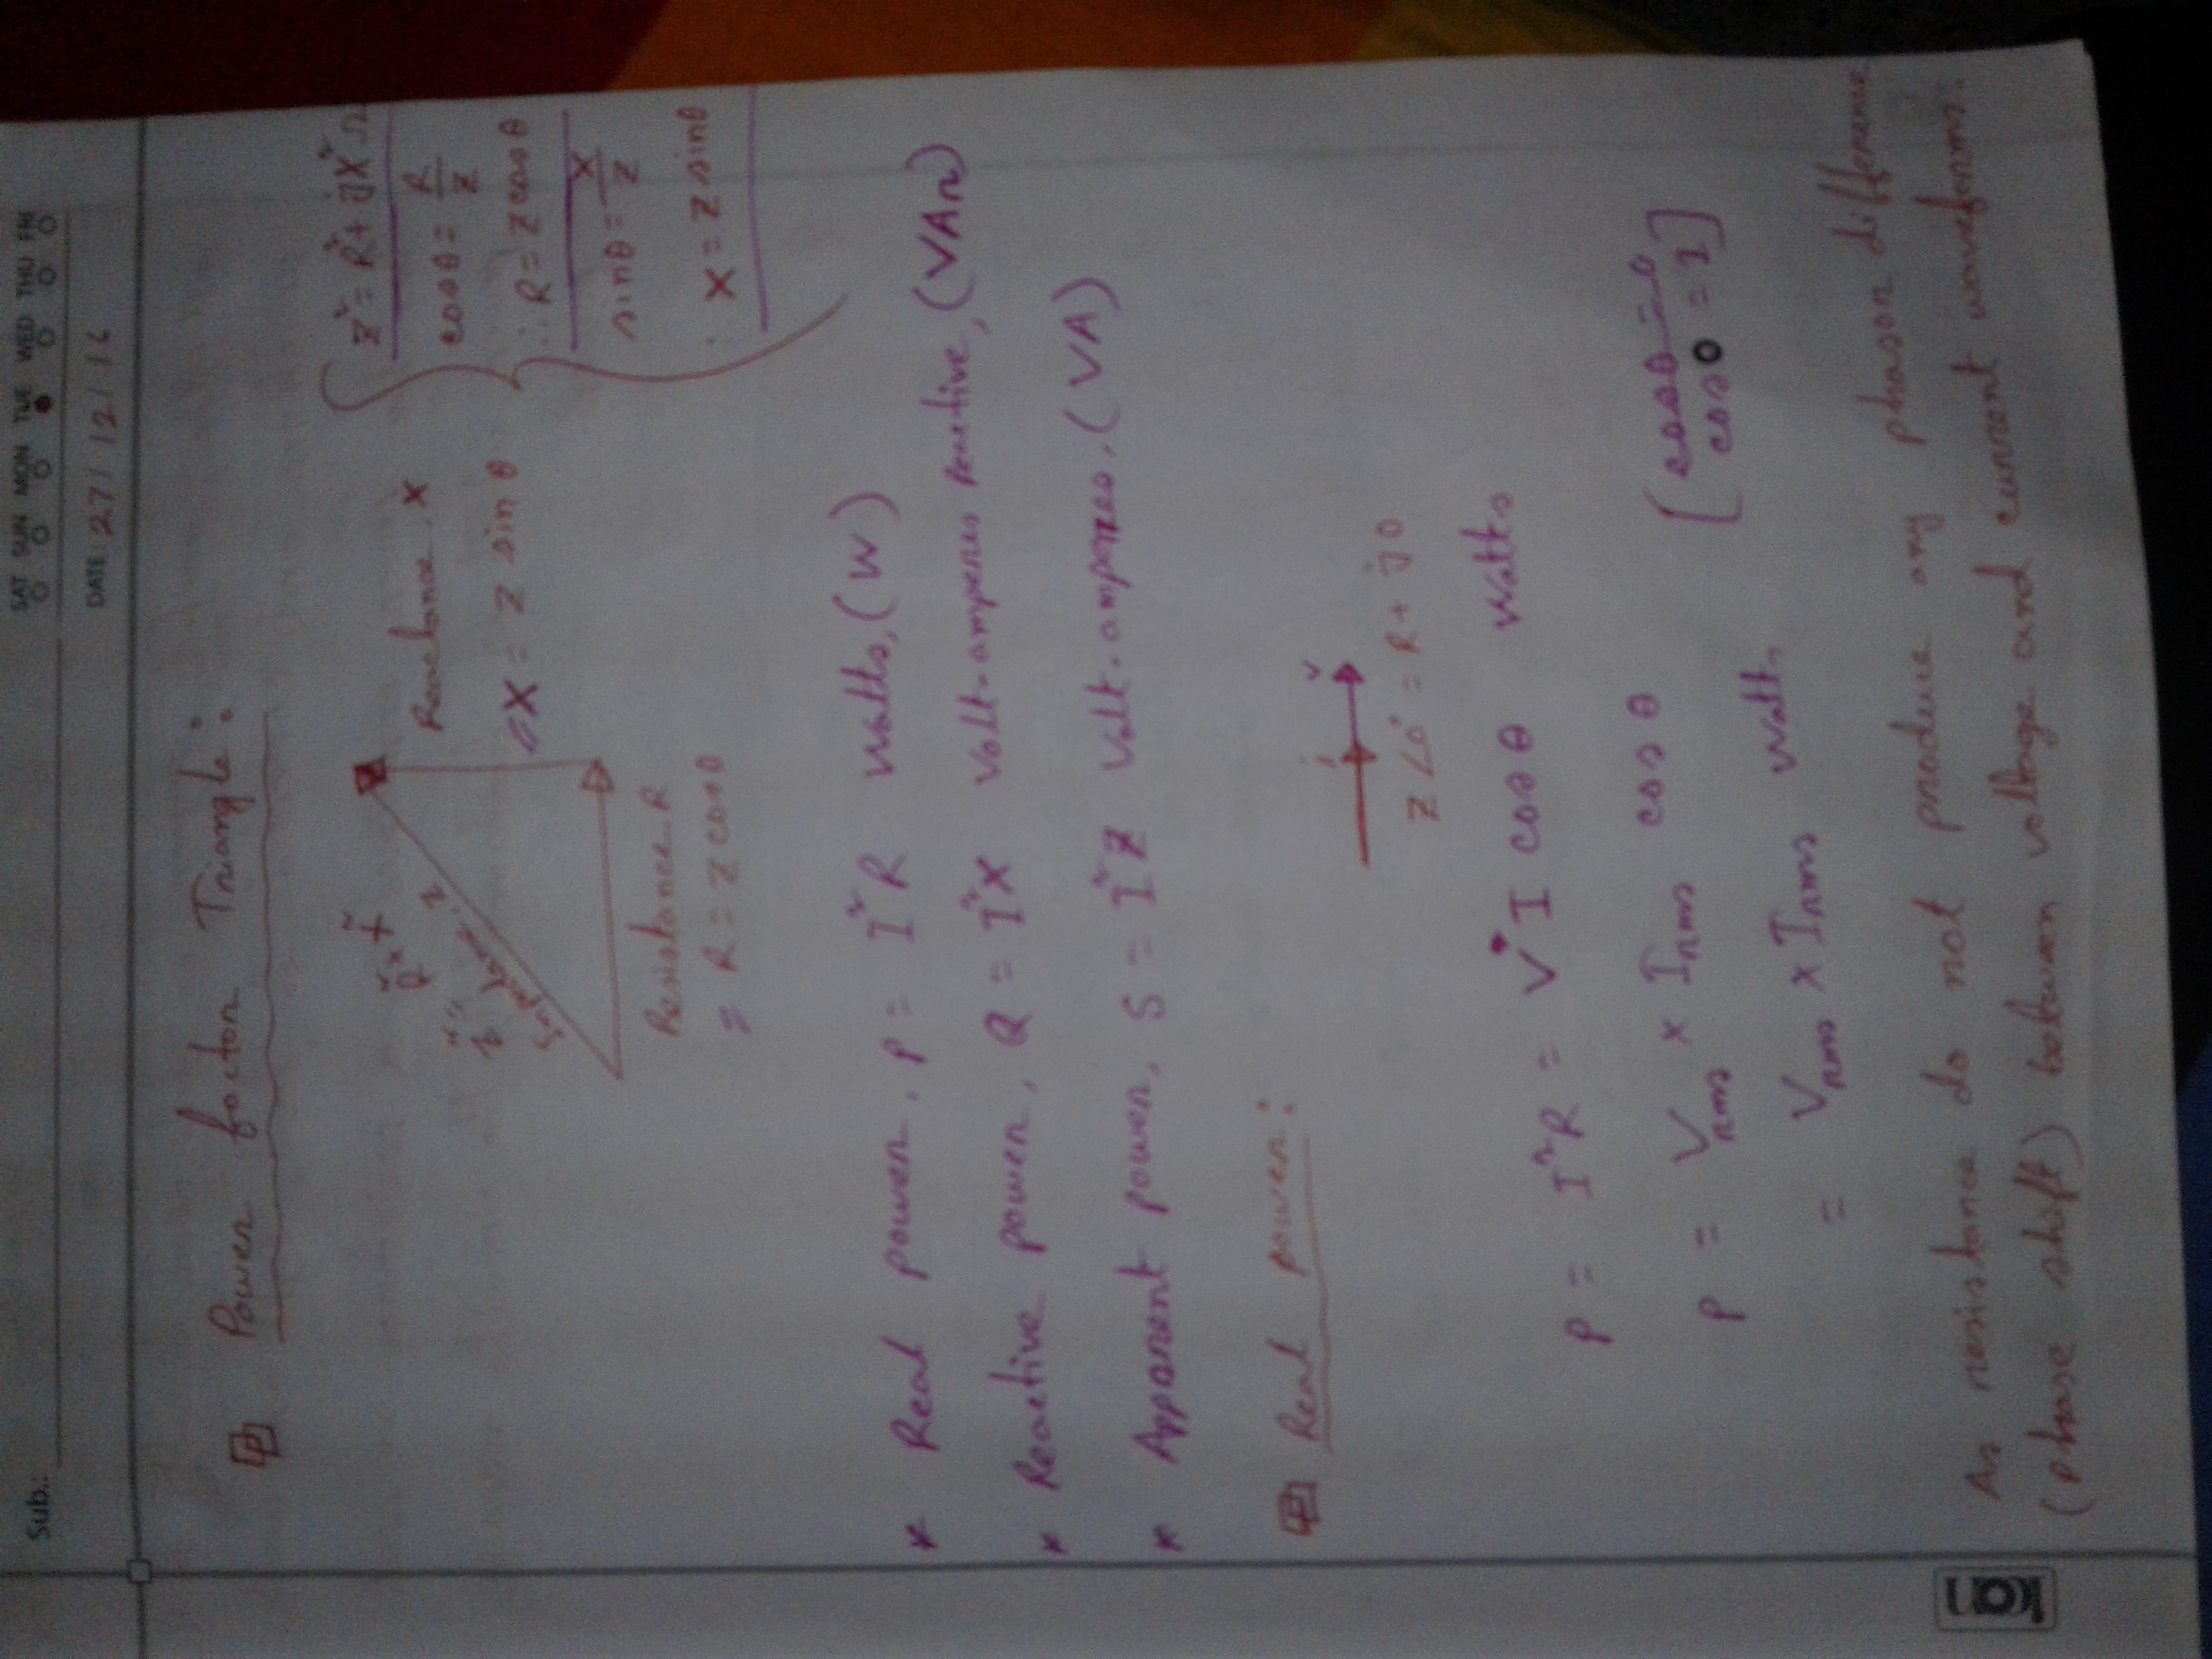 Sub.:
SAT SUN MON TUE WED THU FRI
DATE: 27/12/16
Power factor Triangle:
Z² = R² + X²
Impedance, Z
Reactance, X
= X = Z sin θ
Resistance, R
= R = Z cos θ
Z² = R² + jX² Ω
cos θ = R/Z
∴ R = Z cos θ
sin θ = X/Z
∴ X = Z sin θ
* Real power, P = I²R Watts, (W)
* Reactive power, Q = I²X Volt-amperes reactive, (VAr)
* Apparent power, S = I²Z Volt-amperes, (VA)
Real power:
i V
Z∠0° = R + j0
P = I²R = V I cos θ Watts
P = Vrms × Irms cos θ
[cos θ = 0
cos 0 = 1]
= Vrms × Irms Watts
As resistance do not produce any phasor difference
(phase shift) between voltage and current waveforms.